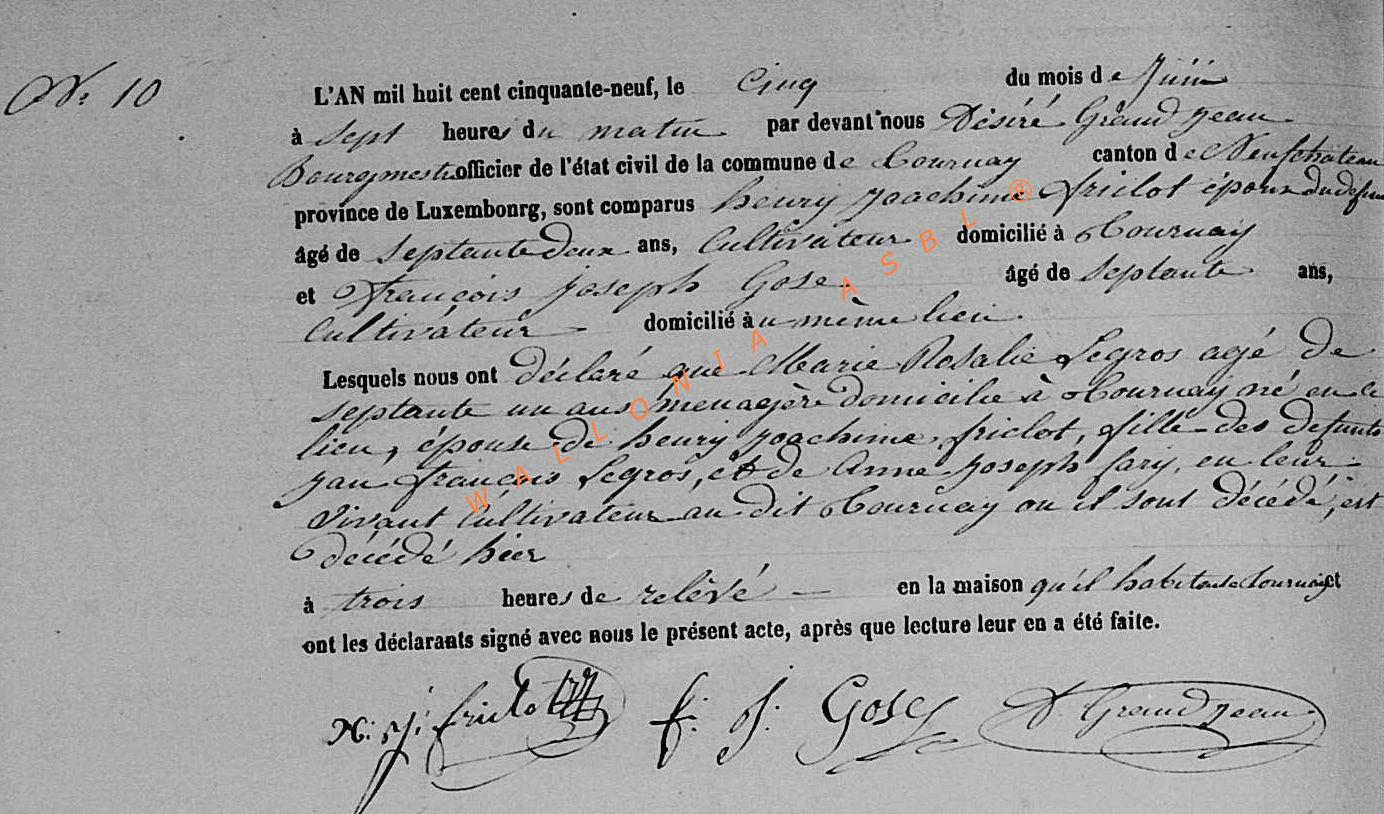 N° 10
L'AN mil huit cent cinquante-neuf, le Cinq du mois de Juin
à Sept heures du matin par devant nous Désiré Grandjean
Bourgmestre officier de l'état civil de la commune de Tournay canton de Neufchateau
province de Luxembonrg, sont comparus henry joachime friclot époux du defun
âgé de septante deux ans, Cultivateur domicilié à Tournay
et François joseph Gose âgé de Septante ans,
Cultivateur domicilié àu même lieu.
Lesquels nous ont déclaré que Marie Rosalie Legros agé de
septante un ans menagère domicilié à Tournay né en ce
lieu, épouse de henry joachime friclot, fille des defunts
jan françois Legros, et de Anne joseph fary, en leur
vivant Cultivateur au dit Tournay ou il sont décédé, est
décédé hier
à trois heures de relévé en la maison qu'il habitent à Tournay et
ont les déclarants signé avec nous le présent acte, après que lecture leur en a été faite.
H. J. friclot F. J. Gose D. Grandjean
WALLONIA ASBL ®